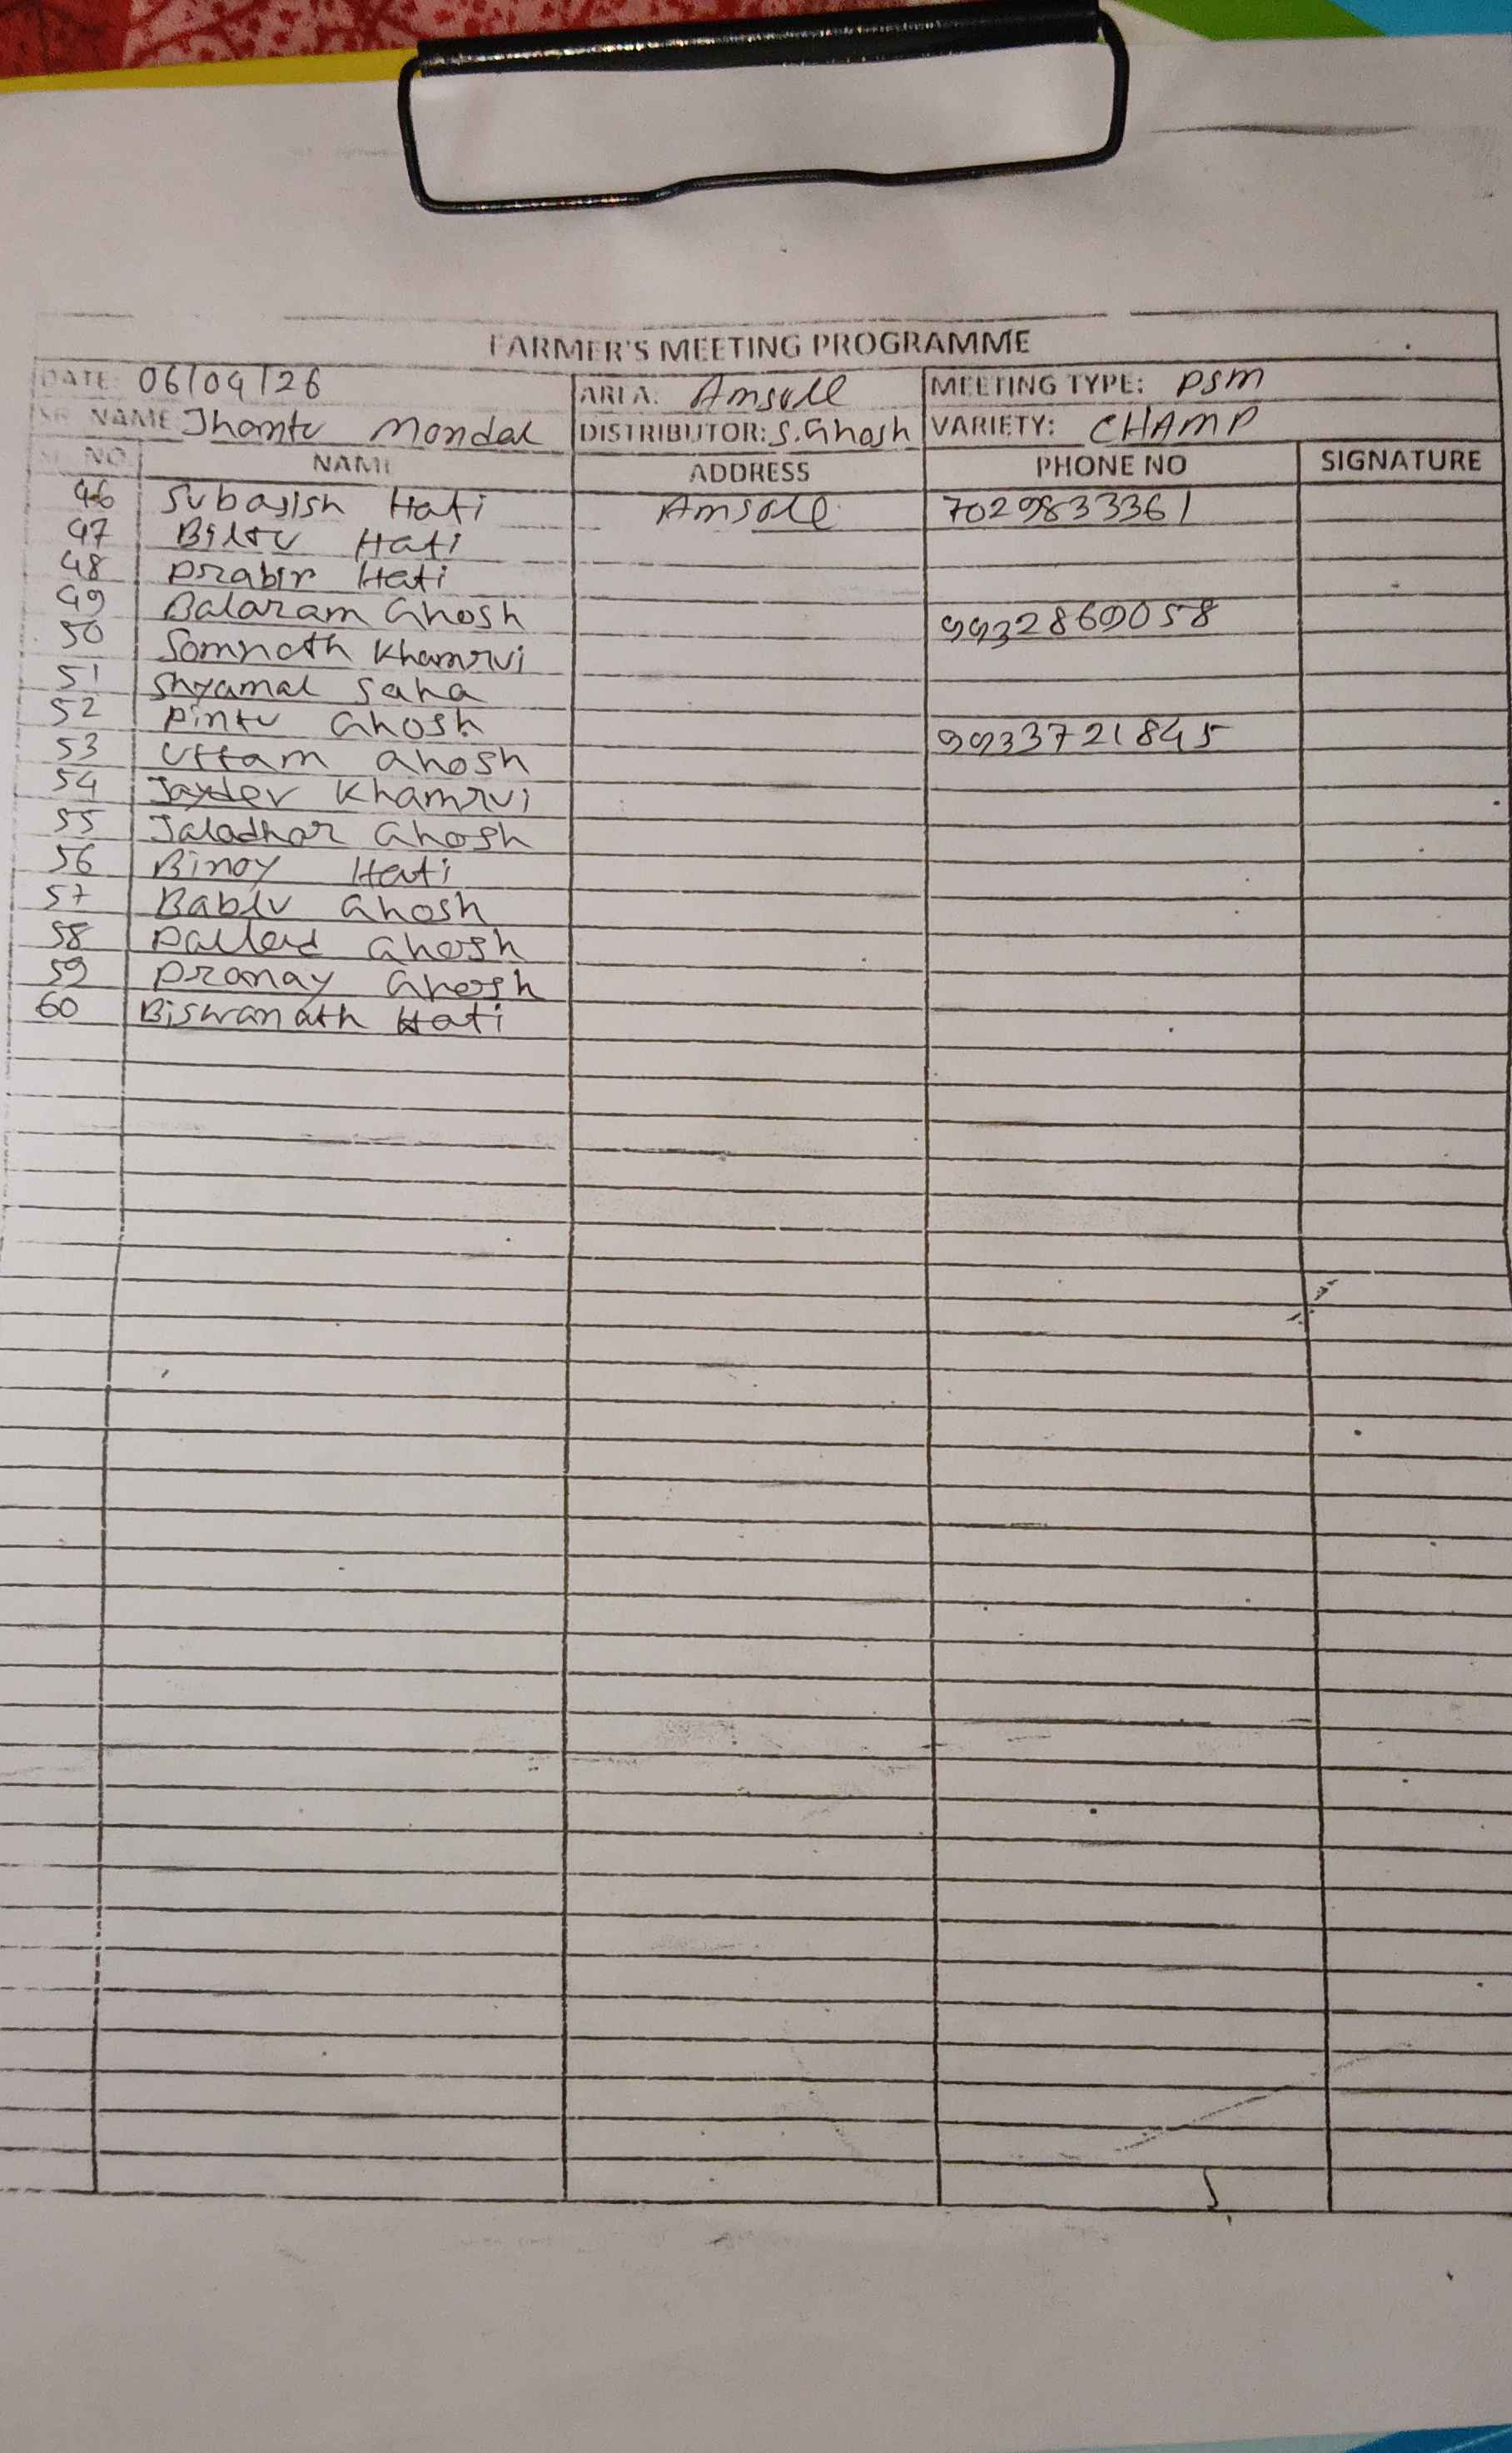 FARMER'S MEETING PROGRAMME
DATE: 06/04/26 AREA: Amsole MEETING TYPE: PSM
SR. NAME Jhantu Mondal DISTRIBUTOR: S. Ghosh VARIETY: CHAMP
SL. NO. NAME ADDRESS PHONE NO SIGNATURE
46 Subasish Hati Amsole 7029833361
47 Biltu Hati
48 Prabir Hati
49 Balaram Ghosh 9932860058
50 Somnath Khamrui
51 Shyamal Saha
52 Pintu Ghosh 9933721845
53 Uttam Ghosh
54 Jaydev Khamrui
55 Jaladhar Ghosh
56 Binoy Hati
57 Bablu Ghosh
58 Ghosh
59 Pranay Ghosh
60 Biswanath Hati